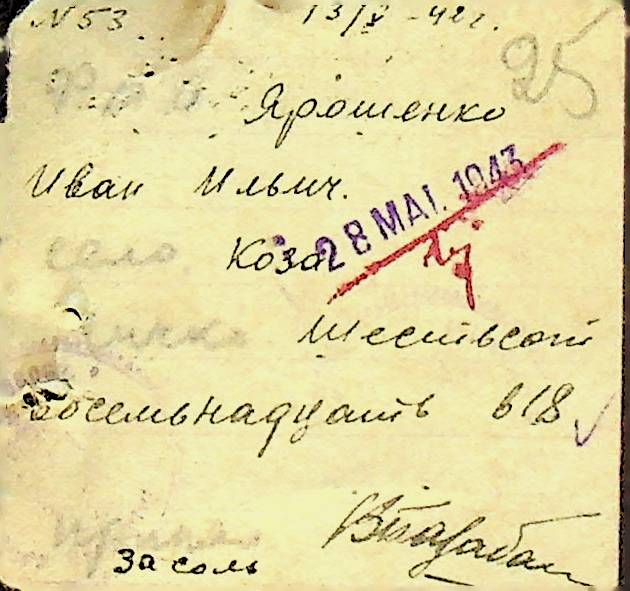 N 53 13/X -42 г.
25
Ярошенко
Иван Ильич.
28 MAI. 1943
село Коза
Шестьсот
восемьнадцать 618
За соль